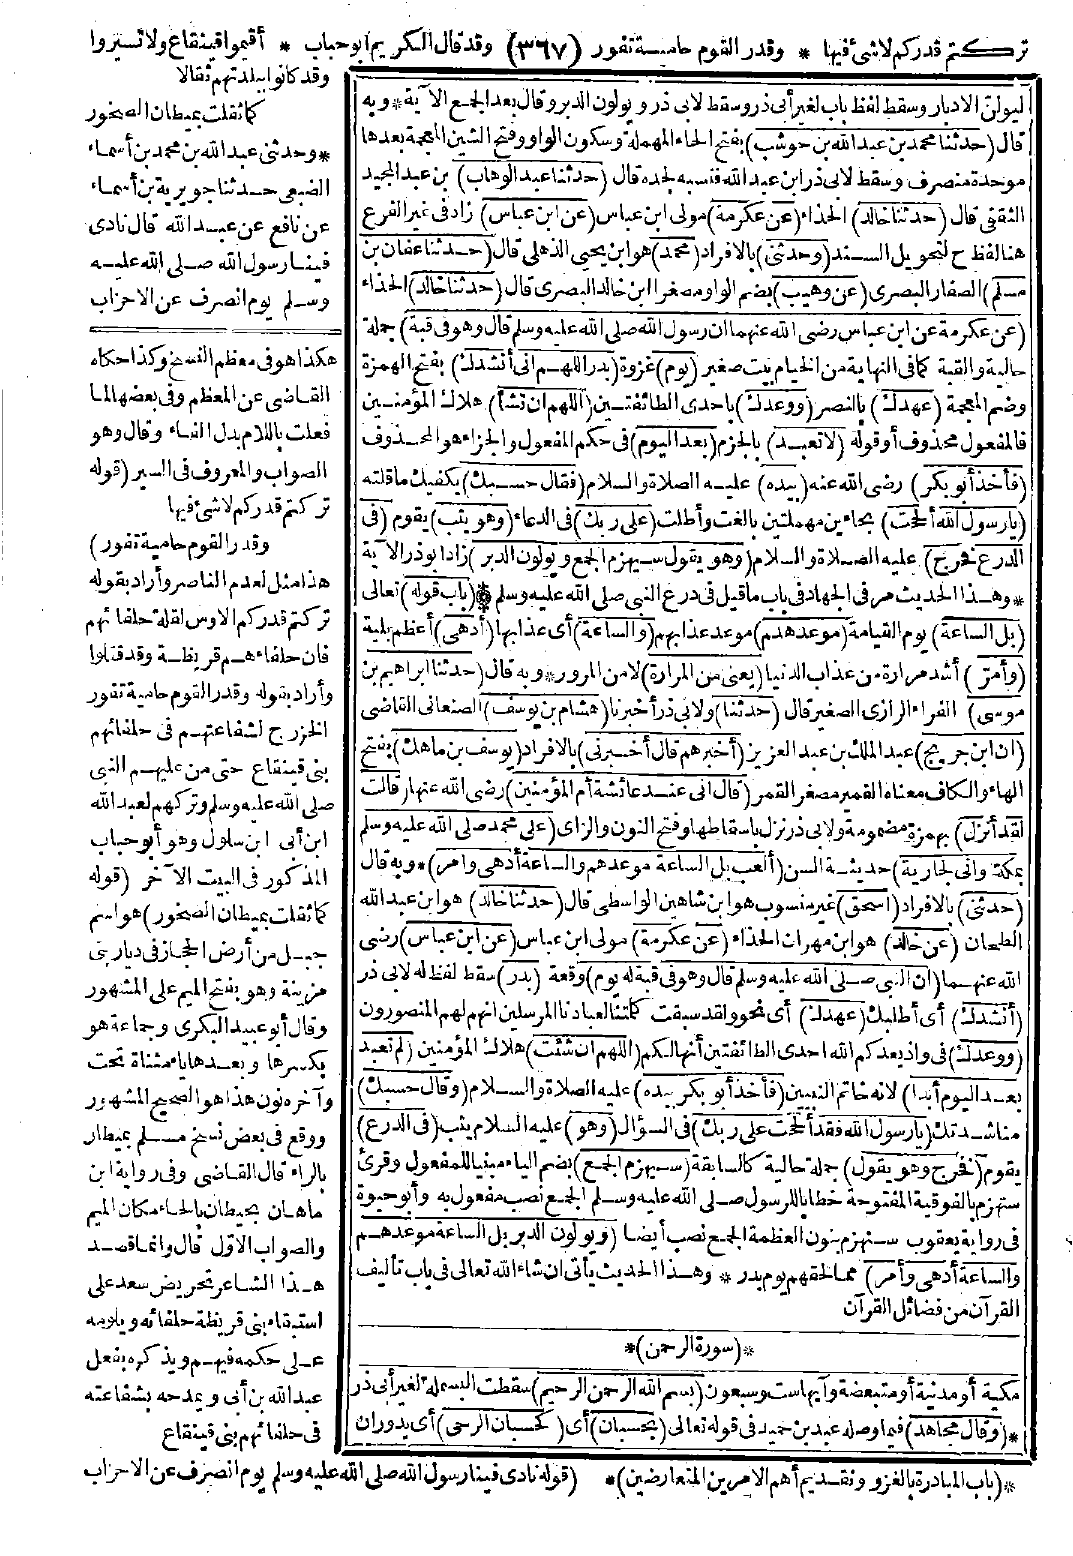 تركتم قدركم لا شئ فيها * وقدر القوم حامية تفور (٣٦٧) وقد قال الكريم أبو حباب * أقيموا قينقاع ولا تسيروا
ليولن الادبار وسقط لفظ باب لغير أبى ذر وسقط لابى ذر ويولون الدبر وقال بعد الجمع الآية * وبه
قال (حدثنا محمد بن عبد الله بن حوشب) بفتح الحاء المهملة وسكون الواو وفتح الشين المعجمة بعدها
موحدة منصرف وسقط لابى ذر ابن عبد الله فنسبه لجده قال (حدثنا عبد الوهاب) بن عبد المجيد
الثقفى قال (حدثنا خالد) الحذاء (عن عكرمة) مولى ابن عباس (عن ابن عباس) زاد فى غير الفرع
هنا لفظ ح لتحويل السند (وحدثنى) بالافراد (محمد) هو ابن يحيى الذهلى قال (حدثنا عفان بن
مسلم) الصفار البصرى (عن وهيب) بضم الواو مصغرا ابن خالد البصرى قال (حدثنا خالد) الحذاء
(عن عكرمة عن ابن عباس رضى الله عنهما ان رسول الله صلى الله عليه وسلم قال وهو فى قبة) جملة
حالية والقبة كما فى النهاية من الخيام بيت صغير (يوم) غزوة (بدر اللهم انى أنشدك) بفتح الهمزة
وضم المعجمة (عهدك) بالنصر (ووعدك) باحدى الطائفتين (اللهم ان تشأ) هلاك المؤمنين
فالمفعول محذوف أو قوله (لا تعبد) بالجزم (بعد اليوم) فى حكم المفعول والجزاء هو المحذوف
(فأخذ أبو بكر) رضى الله عنه (بيده) عليه الصلاة والسلام (فقال حسبك) يكفيك ما قلته
(يا رسول الله ألححت) بحاءين مهملتين بالغت وأطلت (على ربك) فى الدعاء (وهو يثب) يقوم (فى
الدرع فخرج) عليه الصلاة والسلام (وهو يقول سيهزم الجمع ويولون الدبر) زاد أبو ذر الآية
* وهذا الحديث مر فى الجهاد فى باب ما قيل فى درع النبى صلى الله عليه وسلم * (باب قوله) تعالى
(بل الساعة) يوم القيامة (موعدهم) موعد عذابهم (والساعة) أى عذابها (أدهى) أعظم بلية
(وأمر) أشد مرارة من عذاب الدنيا (يعنى من المرارة) لا من المرور * وبه قال (حدثنا ابراهيم بن
موسى) الفراء الرازى الصغير قال (حدثنا) ولابى ذر أخبرنا (هشام بن يوسف) الصنعانى القاضى
(ان ابن جريج) عبد الملك بن عبد العزيز (أخبرهم قال أخبرنى) بالافراد (يوسف بن ماهك) بفتح
الهاء والكاف معناه القمير مصغر القمر (قال انى عند عائشة أم المؤمنين) رضى الله عنها (قالت
لقد أنزل) بهمزة مضمومة ولابى ذر نزل باسقاطها وفتح النون والزاى (على محمد صلى الله عليه وسلم
بمكة وانى لجارية) حديثة السن (ألعب بل الساعة موعدهم والساعة أدهى وأمر) * وبه قال
(حدثنى) بالافراد (اسحق) غير منسوب هو ابن شاهين الواسطى قال (حدثنا خالد) هو ابن عبد الله
الطحان (عن خالد) هو ابن مهران الحذاء (عن عكرمة) مولى ابن عباس (عن ابن عباس) رضى
الله عنهما (ان النبى صلى الله عليه وسلم قال وهو فى قبة له يوم) وقعة (بدر) سقط لفظ له لابى ذر
(أنشدك) أى أطلبك (عهدك) أى نحو ولقد سبقت كلمتنا لعبادنا المرسلين انهم لهم المنصورون
(ووعدك) فى واذ يعدكم الله احدى الطائفتين أنها لكم (اللهم ان شئت) هلاك المؤمنين (لم تعبد
بعد اليوم أبدا) لانه خاتم النبيين (فأخذ أبو بكر بيده) عليه الصلاة والسلام (وقال حسبك)
مناشدتك (يا رسول الله فقد ألححت على ربك) فى السؤال (وهو) عليه السلام يثب (فى الدرع)
يقوم (فخرج وهو يقول) جملة حالية كالسابقة (سيهزم الجمع) بضم الياء مبنيا للمفعول وقرئ
ستهزم بالفوقية المفتوحة خطابا للرسول صلى الله عليه وسلم الجمع نصب مفعول به وأبو حيوة
فى رواية يعقوب سنهزم بنون العظمة الجمع نصب أيضا (ويولون الدبر بل الساعة موعدهم
والساعة أدهى وأمر) مما لحقهم يوم بدر * وهذا الحديث يأتى ان شاء الله تعالى فى باب تأليف
القرآن من فضائل القرآن
*(سورة الرحمن)*
مكية أو مدنية أو متبعضة وآيها ست وسبعون (بسم الله الرحمن الرحيم) سقطت البسملة لغير أبى ذر
* (وقال مجاهد) فيما وصله عبد بن حميد فى قوله تعالى (بحسبان) أى (كحسبان الرحى) أى يدوران
وقد كانوا ببلدتهم ثقالا
كما ثقلت بميطان الصخور
* وحدثنى عبد الله بن محمد بن أسماء
الضبعى حدثنا جويرية بن أسماء
عن نافع عن عبد الله قال نادى
فينا رسول الله صلى الله عليه
وسلم يوم انصرف عن الاحزاب
هكذا هو فى معظم النسخ وكذا حكاه
القاضى عن المعظم وفى بعضها لما
فعلت باللام بدل الفاء وقال وهو
الصواب والمعروف فى السير (قوله
تركتم قدركم لا شئ فيها
وقدر القوم حامية تفور)
هذا مثل لعدم الناصر وأراد بقوله
تركتم قدركم الاوس لقلة حلفائهم
فان حلفاءهم قريظة وقد قتلوا
وأراد بقوله وقدر القوم حامية تفور
الخزرج لشفاعتهم فى حلفائهم
بنى قينقاع حتى من عليهم النبى
صلى الله عليه وسلم وتركهم لعبد الله
ابن أبى ابن سلول وهو أبو حباب
المذكور فى البيت الآخر (قوله
كما ثقلت بميطان الصخور) هو اسم
جبل من أرض الحجاز فى ديار بنى
مزينة وهو بفتح الميم على المشهور
وقال أبو عبيد البكرى وجماعة هو
بكسرها وبعدها ياء مثناة تحت
وآخره نون هذا هو الصحيح المشهور
ووقع فى بعض نسخ مسلم بميطار
بالراء قال القاضى وفى رواية ابن
ماهان بحيطان بالحاء مكان الميم
والصواب الاول قال وانما قصد
هذا الشاعر تحريض سعد على
استبقاء بنى قريظة حلفائه ويلومه
على حكمه فيهم ويذكره بفعل
عبد الله بن أبى ويمدحه بشفاعته
فى حلفائهم بنى قينقاع
*(باب المبادرة بالغزو وتقديم أهم الامرين المتعارضين)* (قوله نادى فينا رسول الله صلى الله عليه وسلم يوم انصرف عن الاحزاب